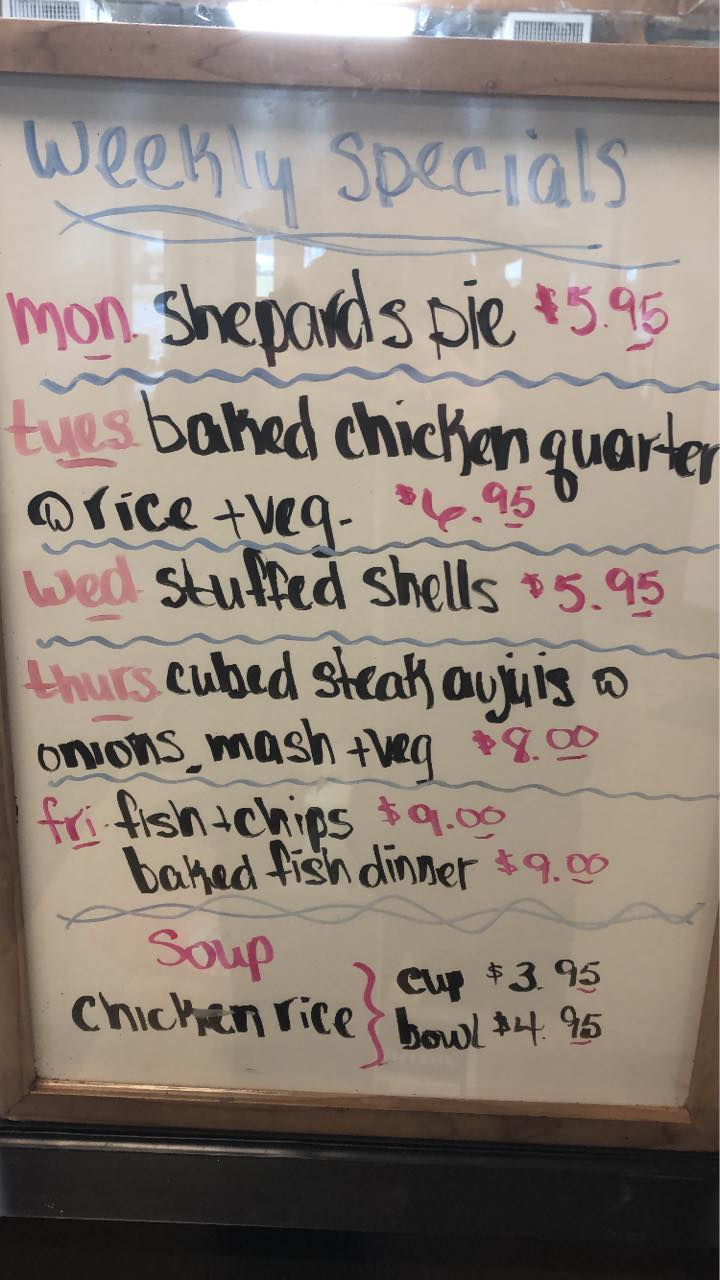 Weekly Specials
mon. Shepards pie $5.95
tyes baked chicken quarter
w rice + veg. $6.95
wed stuffed shells $5.95
thurs cubed steak aujuis w
onions, mash + veg $8.00
fri. fish + chips $9.00
baked fish dinner $9.00
Soup
chicken rice } cup $3.95
bowl $4.95